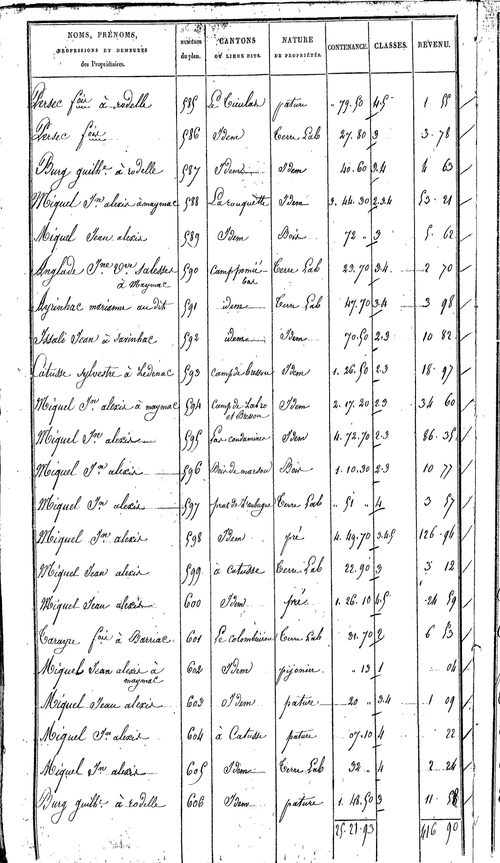 NOMS, PRÉNOMS, PROFESSIONS ET DEMEURES des Propriétaires. NUMÉROS du plan. CANTONS OU LIEUX DITS. NATURE DE PROPRIÉTÉS. CONTENANCE. CLASSES. REVENU.
Persec fois à rodelle 585 Le Cieulat pature " 79.50 4.5 1 55
Persec fois 586 Idem Terre Lab 27.80 3 3.78
Burg guilhe à rodelle 587 Idem Idem 40.60 3.4 4 63
Miquel Jn alexis à maymac 588 La rouquette Idem 3.44.30 2.3.4 53.21
Miquel Jean alexis 589 Idem Bois 72 " 3 5.62
Anglade 590 Terre Lab 23.70 3.4 2 70
à Maymac
Ayrinhac marianne au dit 591 idem Terre Lab 47.70 3.4 3 98
Issali Jean à sarinhac 592 idem Idem 70.50 2.3 10 82
Catusse sylvestre à Lédenac 593 camp de bressou Idem 1.26.50 2.3 18.97
Miquel Jn alexis à maymac 594 camp de Idem 2.17.20 2.3 34 60
et Bressou
Miquel Jn alexis 595 las condamines Idem 4.72.70 2.3 86.35
Miquel Jn alexis 596 Bois de Bois 1.10.30 2.3 10 77
Miquel Jn alexis 597 Terre Lab " 51 " 4 3 57
Miquel Jn alexis 598 Idem pré 4.49.70 3.4.5 126.96
Miquel Jean alexis 599 à Catusse Terre Lab 22.90 3 3 12
Miquel Jean alexis 600 Idem pré 1.26.10 4.5 24 59
Tarayre fois à Barriac 601 Le colombier Terre Lab 31.70 2 6 53
Miquel Jean alexis à 602 Idem pijonier " 13 1 04
maymac
Miquel Jean alexis 603 Idem pature 20 " 3.4 1 09
Miquel Jn alexis 604 à Catusse pature 07.10 4 22
Miquel Jn alexis 605 Idem Terre Lab 32 " 4 2 24
Burg guilhe à rodelle 606 Idem pature 1.48.50 3 11 58
25.21.93 416 90